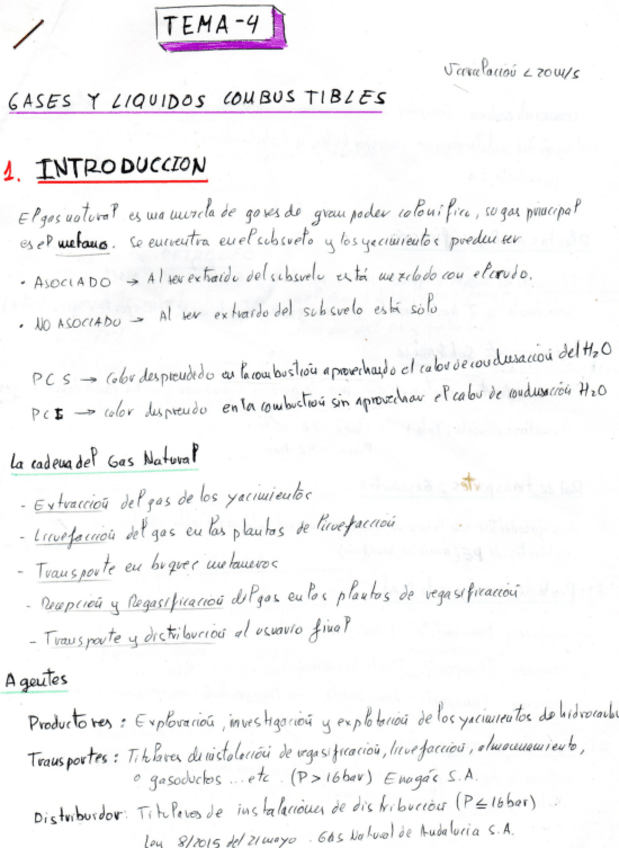 TEMA-4
Circulación < 20 m/s
GASES Y LIQUIDOS COMBUSTIBLES
1. INTRODUCCION
El gas natural es una mezcla de gases de gran poder calorífico, su gas principal
es el metano. Se encuentra en el subsuelo y los yacimientos pueden ser
• ASOCIADO → Al ser extraído del subsuelo está mezclado con el crudo.
• NO ASOCIADO → Al ser extraído del subsuelo está solo
PCS → Calor desprendido en la combustión aprovechando el calor de condensación del H2O
PCI → calor desprendo en la combustión sin aprovechar el calor de condensación H2O
La cadena del Gas Natural
- Extracción del gas de los yacimientos
- Licuefacción del gas en las plantas de licuefacción
- Transporte en buques metaneros
- Recepción y Regasificación del gas en las plantas de regasificación
- Transporte y distribución al usuario final
Agentes
Productores: Exploración, investigación y explotación de los yacimientos de hidrocarbu
Transportes: Titulares de instalación de regasificación, licuefacción, almacenamiento,
o gasoductos ... etc. (P > 16 bar) Enagás S.A.
Distribuidor: Titulares de instalaciones de distribución (P ≤ 16 bar)
Ley 8/2015 del 21 mayo. Gas Natural de Andalucia S.A.